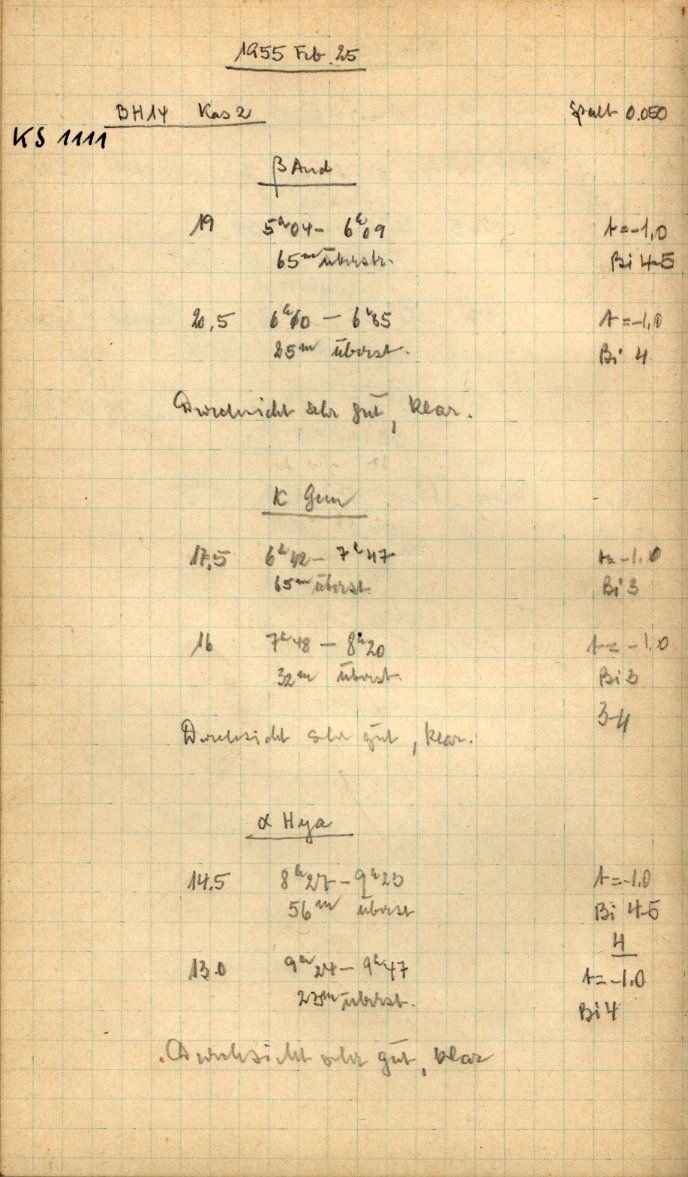 1955 Feb. 25
BH14 Kas 2 Spalt 0.050
KS 1111
β And
19 5h04 - 6h09 t = -1,0
65m überst. Bi 4-5
20,5 6h10 - 6h35 t = -1,0
25m überst. Bi 4
Durchsicht sehr gut, klar.
K Gem
17,5 6h42 - 7h47 t = -1.0
65m überst. Bi 3
16 7h48 - 8h20 t = -1.0
32m überst. Bi 3
3-4
Durchsicht sehr gut, klar.
α Hya
14.5 8h27 - 9h23 t = -1.0
56m überst Bi 4-5
4
13.0 9h24 - 9h47 t = -1.0
23m überst. Bi 4
Durchsicht sehr gut, klar